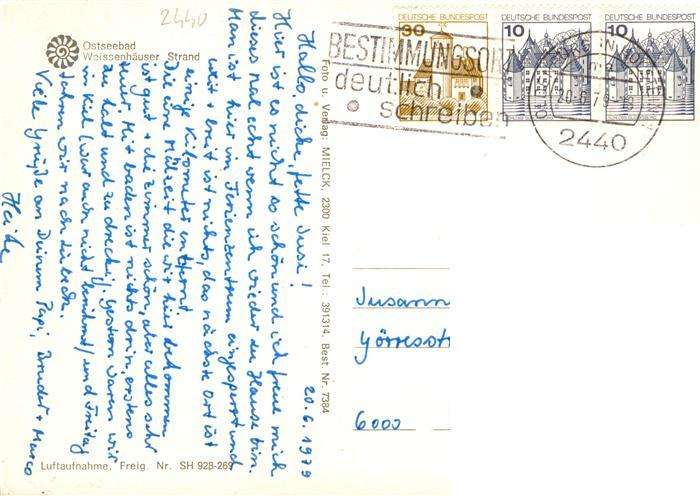 2440
Ostseebad
Weissenhäuser Strand
30
DEUTSCHE BUNDESPOST
10
DEUTSCHE BUNDESPOST
10
DEUTSCHE BUNDESPOST
BESTIMMUNGSORT
deutlich
schreiben
2440
20.6.1979
Hallo dicke, fette Susi!
Hier ist es nicht so schön und ich freue mich
dieses mal echt wenn ich wieder zu Hause bin.
Man ist hier im Ferienzentrum eingesperrt und
weit breit ist nichts, das nächste Ort ist
einige Kilometer entfernt.
Die eine Mahlzeit die wir hier bekommen
ist gut + die Zimmer schön, aber alles sehr
Mit baden ist nichts drin, erstens
zu kalt und zu dreckig. Gestern waren wir
in Kiel (war auch nicht berühmt) und Freitag
fahren wir nach Lübeck.
Viele Grüße an Deinen Papi, Bruder + Marco
Heike
Foto u. Verlag: MIELCK, 2300 Kiel 17, Tel.: 391314, Best. Nr. 7384
Susann
Görresstr
6000
Luftaufnahme, Freig. Nr. SH 928-269